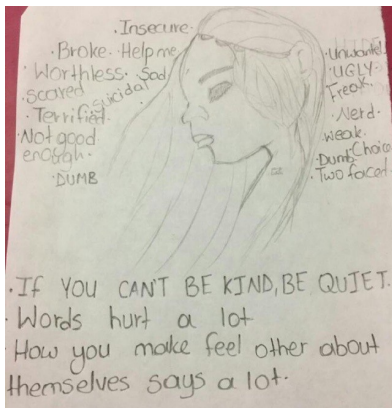 · Insecure ·
· Broke · Help me
· Worthless · Sad
· scared suicidal
· Terrified ·
· Not good
enough ·
· DUMB
· Unwanted
· UGLY
· Freak ·
· Nerd ·
weak ·
· Dumb · Choice
· Two faced ·
· IF YOU CAN'T BE KIND, BE QUIET.
· Words hurt a lot
· How you make feel other about
themselves says a lot.